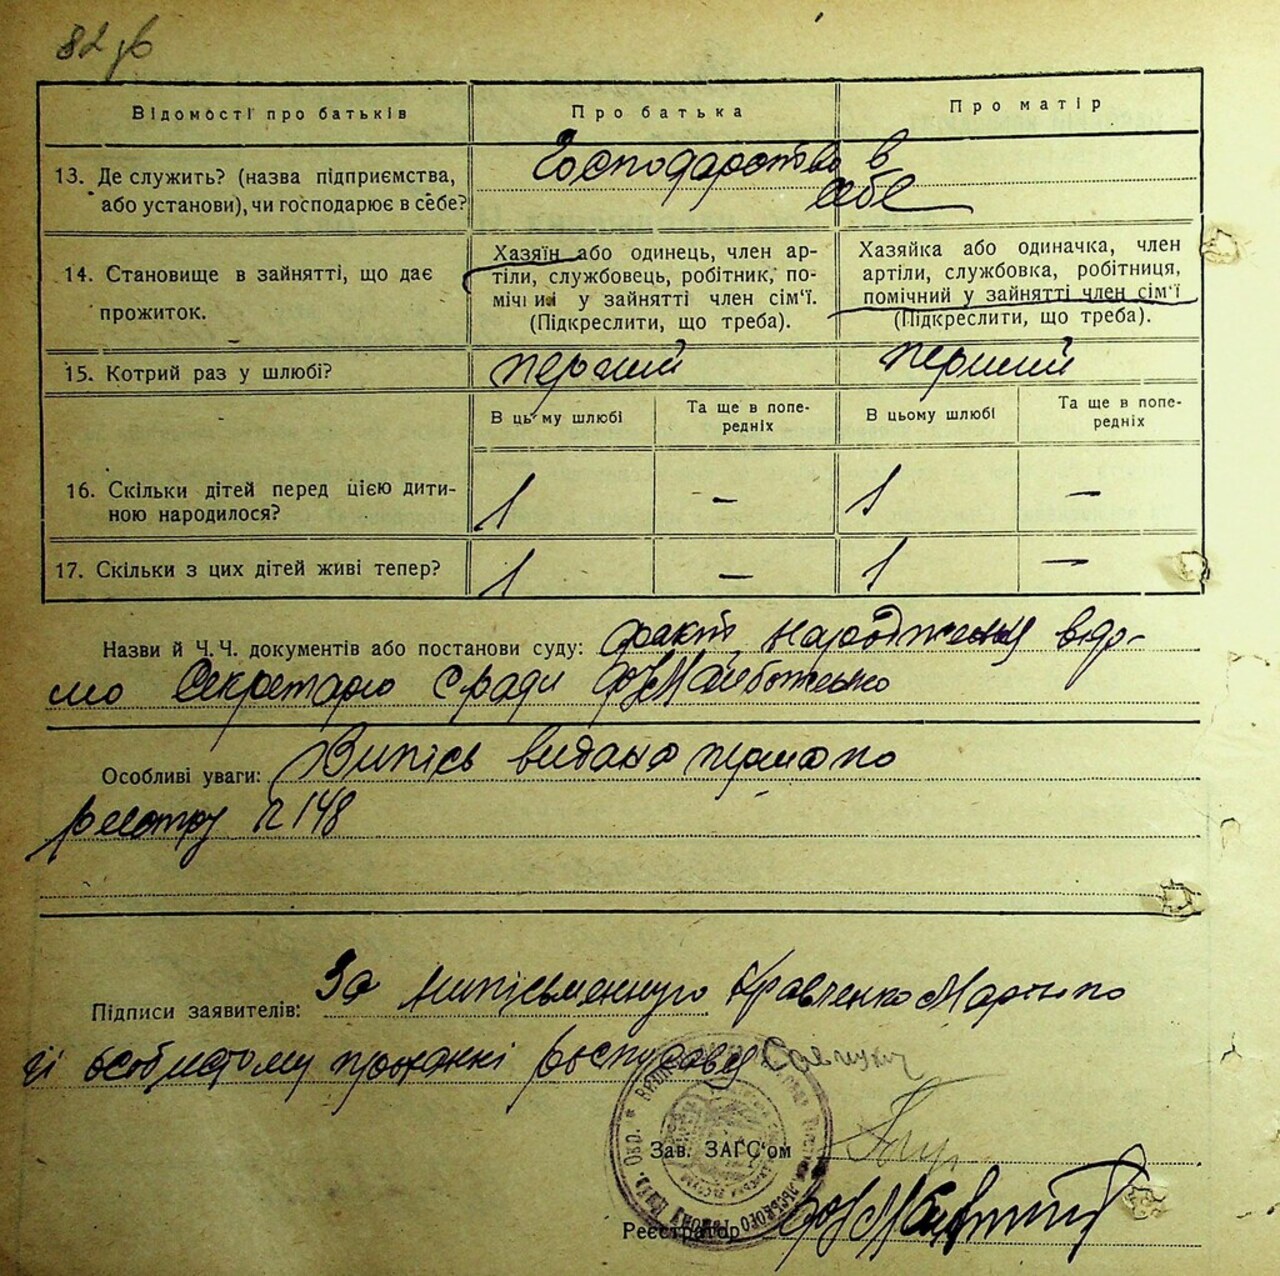 82 зв
Відомості про батьків
Про батька
Про матір
13. Де служить? (назва підприємства,
або установи), чи господарює в себе?
Господарство в
себе
14. Становище в зайнятті, що дає
прожиток.
Хазяїн або одинець, член ар-
тіли, службовець, робітник, по-
мічний у зайнятті член сім'ї.
(Підкреслити, що треба).
Хазяйка або одиначка, член
артіли, службовка, робітниця,
помічний у зайнятті член сім'ї
(Підкреслити, що треба).
15. Котрий раз у шлюбі?
перший
перший
В цьому шлюбі
Та ще в попе-
редніх
В цьому шлюбі
Та ще в попе-
редніх
16. Скільки дітей перед цією дити-
ною народилося?
1
-
1
-
17. Скільки з цих дітей живі тепер?
1
-
1
-
Назви й Ч.Ч. документів або постанови суду: факт народження відо-
мо Секретарю с ради
Особливі уваги: Випись видана
реєстру n 148
Підписи заявителів: За Кравченко
її особистому проханні
Зав. ЗАГС'ом
Реєстратор